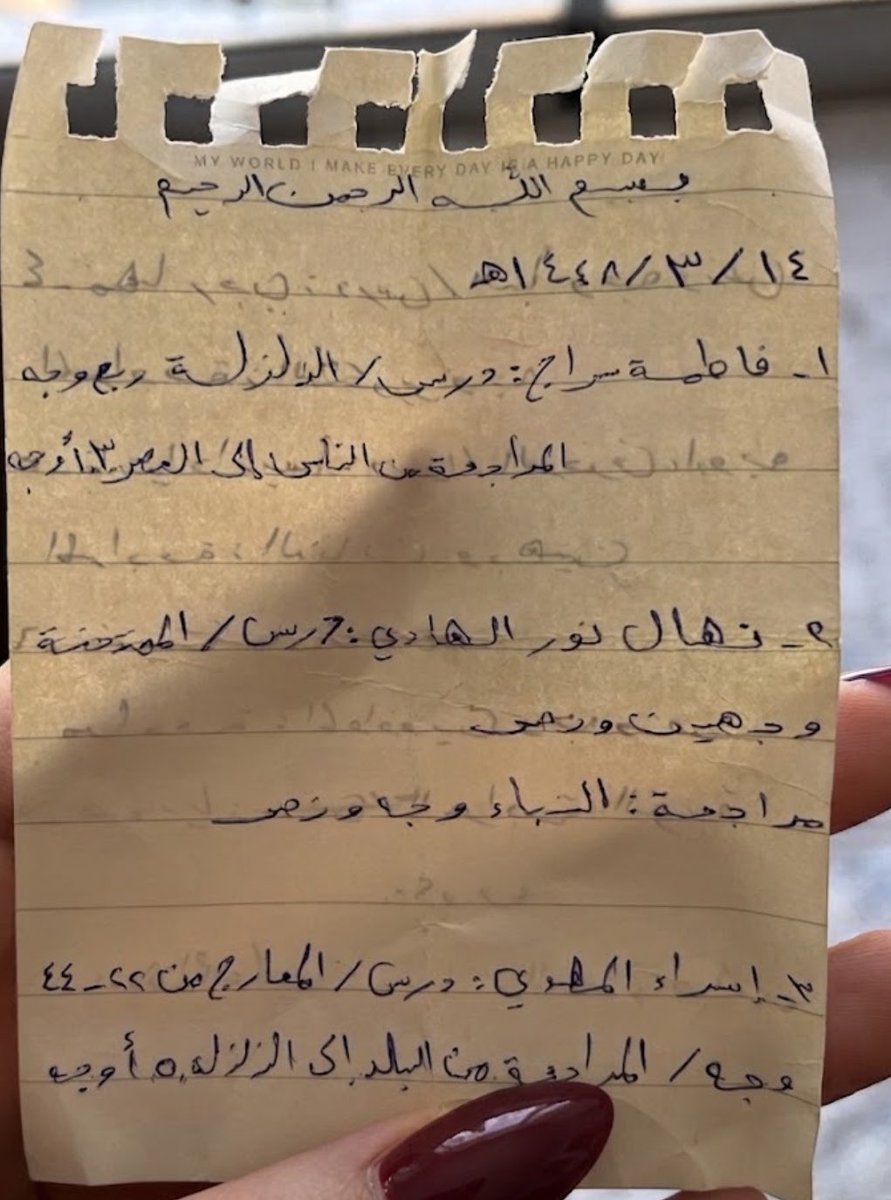 MY WORLD I MAKE EVERY DAY IS A HAPPY DAY
بسم الله الرحمن الرحيم
١٤ / ٣ / ١٤٤٨هـ
١- فاطمة سراج: درس / الزلزلة ربع وجه
المراجعة من الناس إلى العصر ٣ أوجه
٢- نهال نور الهادي: درس / الممتحنة
وجهين ونص
مراجعة: النباء وجه ونص
٣- إسراء المهدي: درس / المعارج من ٢٢-٤٤
وجه / المراجعة من البلد إلى الزلزله ٥ أوجه